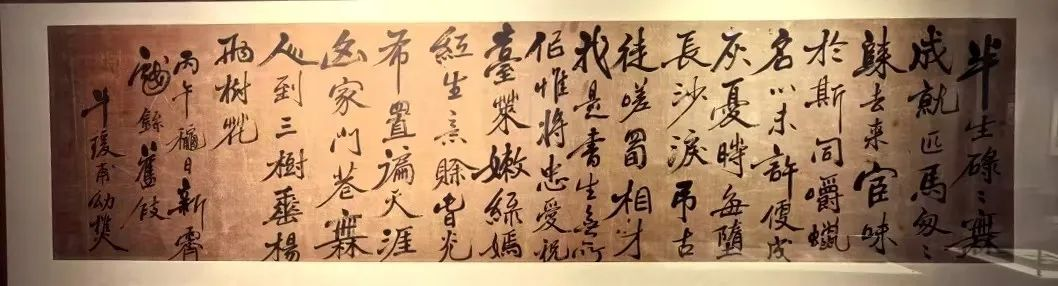 半生碌〻無
成就匹馬匆〻
去来宦味
於斯同嚼蠟
名心未許便成
灰憂時每墮
長沙淚弔古
徒嗟蜀相才
我是書生無所
惟將忠愛祝
臺萊嫩綠嫣
紅生意賒春光
布置遍天涯
家門巷無
人到三樹垂楊
兩樹花
丙午穐日新霽
餘舊
斗瑗甫幼樵